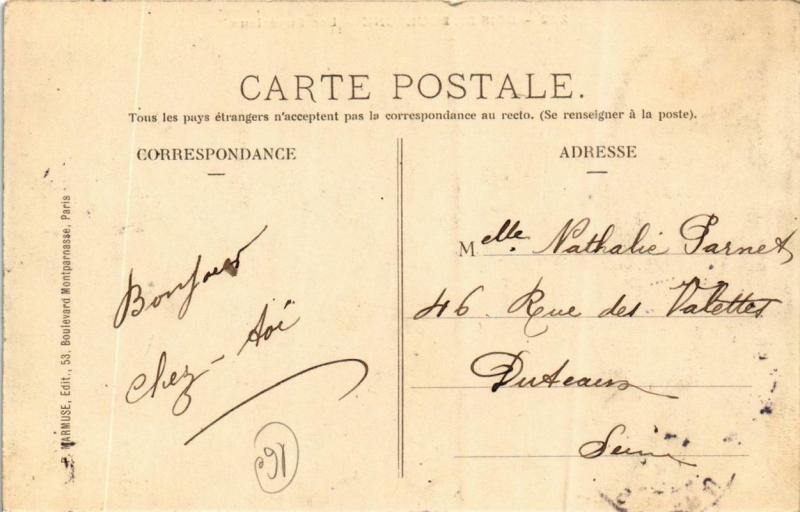 CARTE POSTALE.
Tous les pays étrangers n'acceptent pas la correspondance au recto. (Se renseigner à la poste).
CORRESPONDANCE
ADRESSE
Bonjour
Chez-toi
Melle. Nathalie Parnet
46 Rue des Valettes
Puteaux
Seine
MARMUSE, Edit., 53, Boulevard Montparnasse, Paris